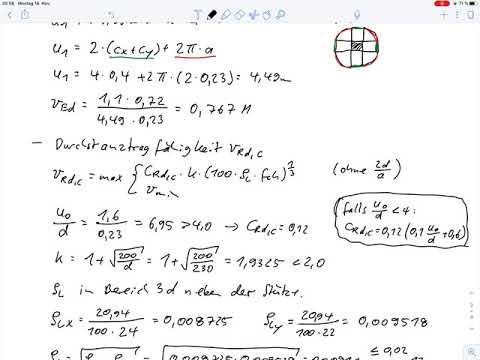 20:58 Montag 16. Nov. 71 %
u₁ = 2·(cx+cy) + 2π·a
u₁ = 4·0,4 + 2π·(2·0,23) = 4,49m
vEd = 1,1·0,72 / 4,49·0,23 = 0,767 M
– Durchstanztragfähigkeit vRd,c
vRd,c = max { CRd,c · k · (100·ρL·fck)^1/3 (ohne 2d/a)
vmin
u₀/d = 1,6/0,23 = 6,95 > 4,0 → CRd,c = 0,12
falls u₀/d < 4:
CRd,c = 0,12 (0,1 u₀/d + 0,6)
k = 1 + √200/d = 1 + √200/230 = 1,9325 < 2,0
ρL in Bereich 3d neben der Stütze.
ρLx = 20,94 / 100·24 = 0,008725 ρLy = 20,94 / 100·22 = 0,009518
≤ 0,02